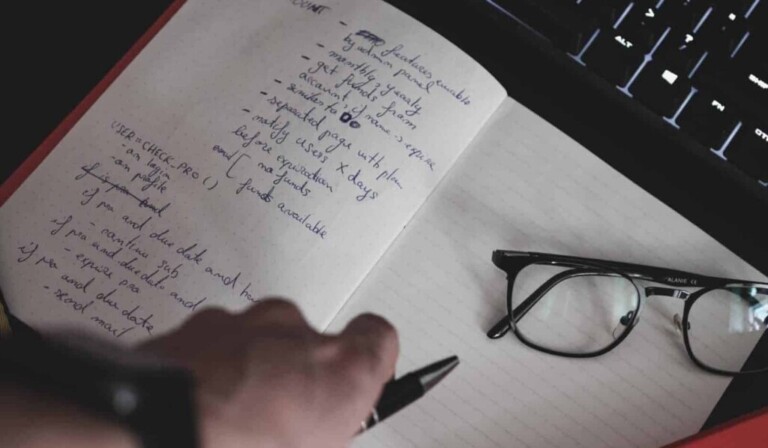 - features enable
by admin panel
- monthly, yearly
- get funds from
account, if none → expire
- similar to DO
- separated page with plan
- notify users X days
before expiration
and [ no funds
funds available
USER = CHECK_PRO ()
- on login
- on profile
if is pro and
if pro and due date and
- continue sub
if pro and due date and
- expire pro
if pro and due date
- send mail
ALANIE
ALT
FN